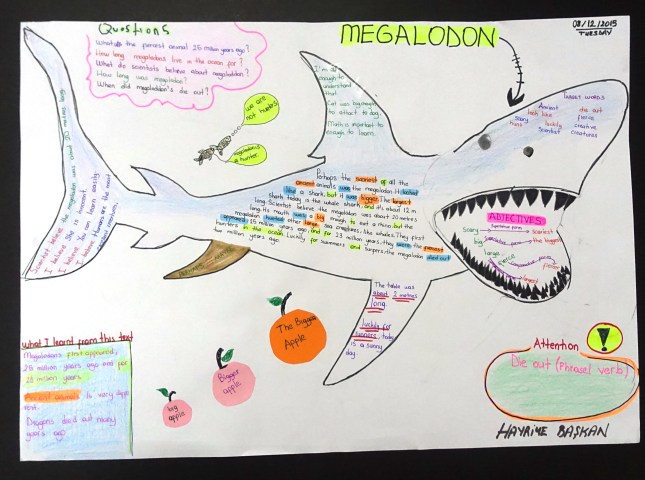 Questions
What is the funniest animal 25 million years ago?
How long megalodons live in the ocean for?
What do scientists believe about megalodon?
How long was megalodon?
When did megalodon's die out?
MEGALODON
02/12/2015
TUESDAY
we are
not hunters
megalodon is
a hunter
I'm old
enough to
understand
that
Cat was big enough
to attact to dog.
Math is important to
enough to learn.
INSECT WORDS
Ancient
look like
luckily
Scientist
scary
die out
fierce
creative
creatures
ADJECTIVES
Scary
scariest
big
the biggest
large
fierce
fiercer
largest
Perhaps the scariest of all the
ancient animals was the megalodon. It looked
like a shark but it was bigger. The largest
shark today is the whale shark, and it's about 12 m
long. Scientist believe the megalodon was about 20 metres
long. Its mouth was big enough to eat a
megalodon hunted other large sea creatures, like whales. They first
appeared 25 million years ago and for 23 million years, they were the fiercest
hunters in the ocean. Luckily for swimmers and surfers, the megalodon died out
two million years ago.
Scientist believe the megalodon was about 20 metres long
I believe she is innocent.
I believe You can learn easily
I believe humans are the most
creatures.
The table was
about 2 metres
long.
luckily for
runners, today
is a sunny
day.
The Biggest
Apple
Bigger
apple
big
apple
what I learned from this text
Megalodons first appeared,
25 million years ago and for
23 million years.
Ancient animals is very
Dragons died out many
years ago.
Attention
!
Die out (Phrasel verb)
HAYRİYE BAŞKAN